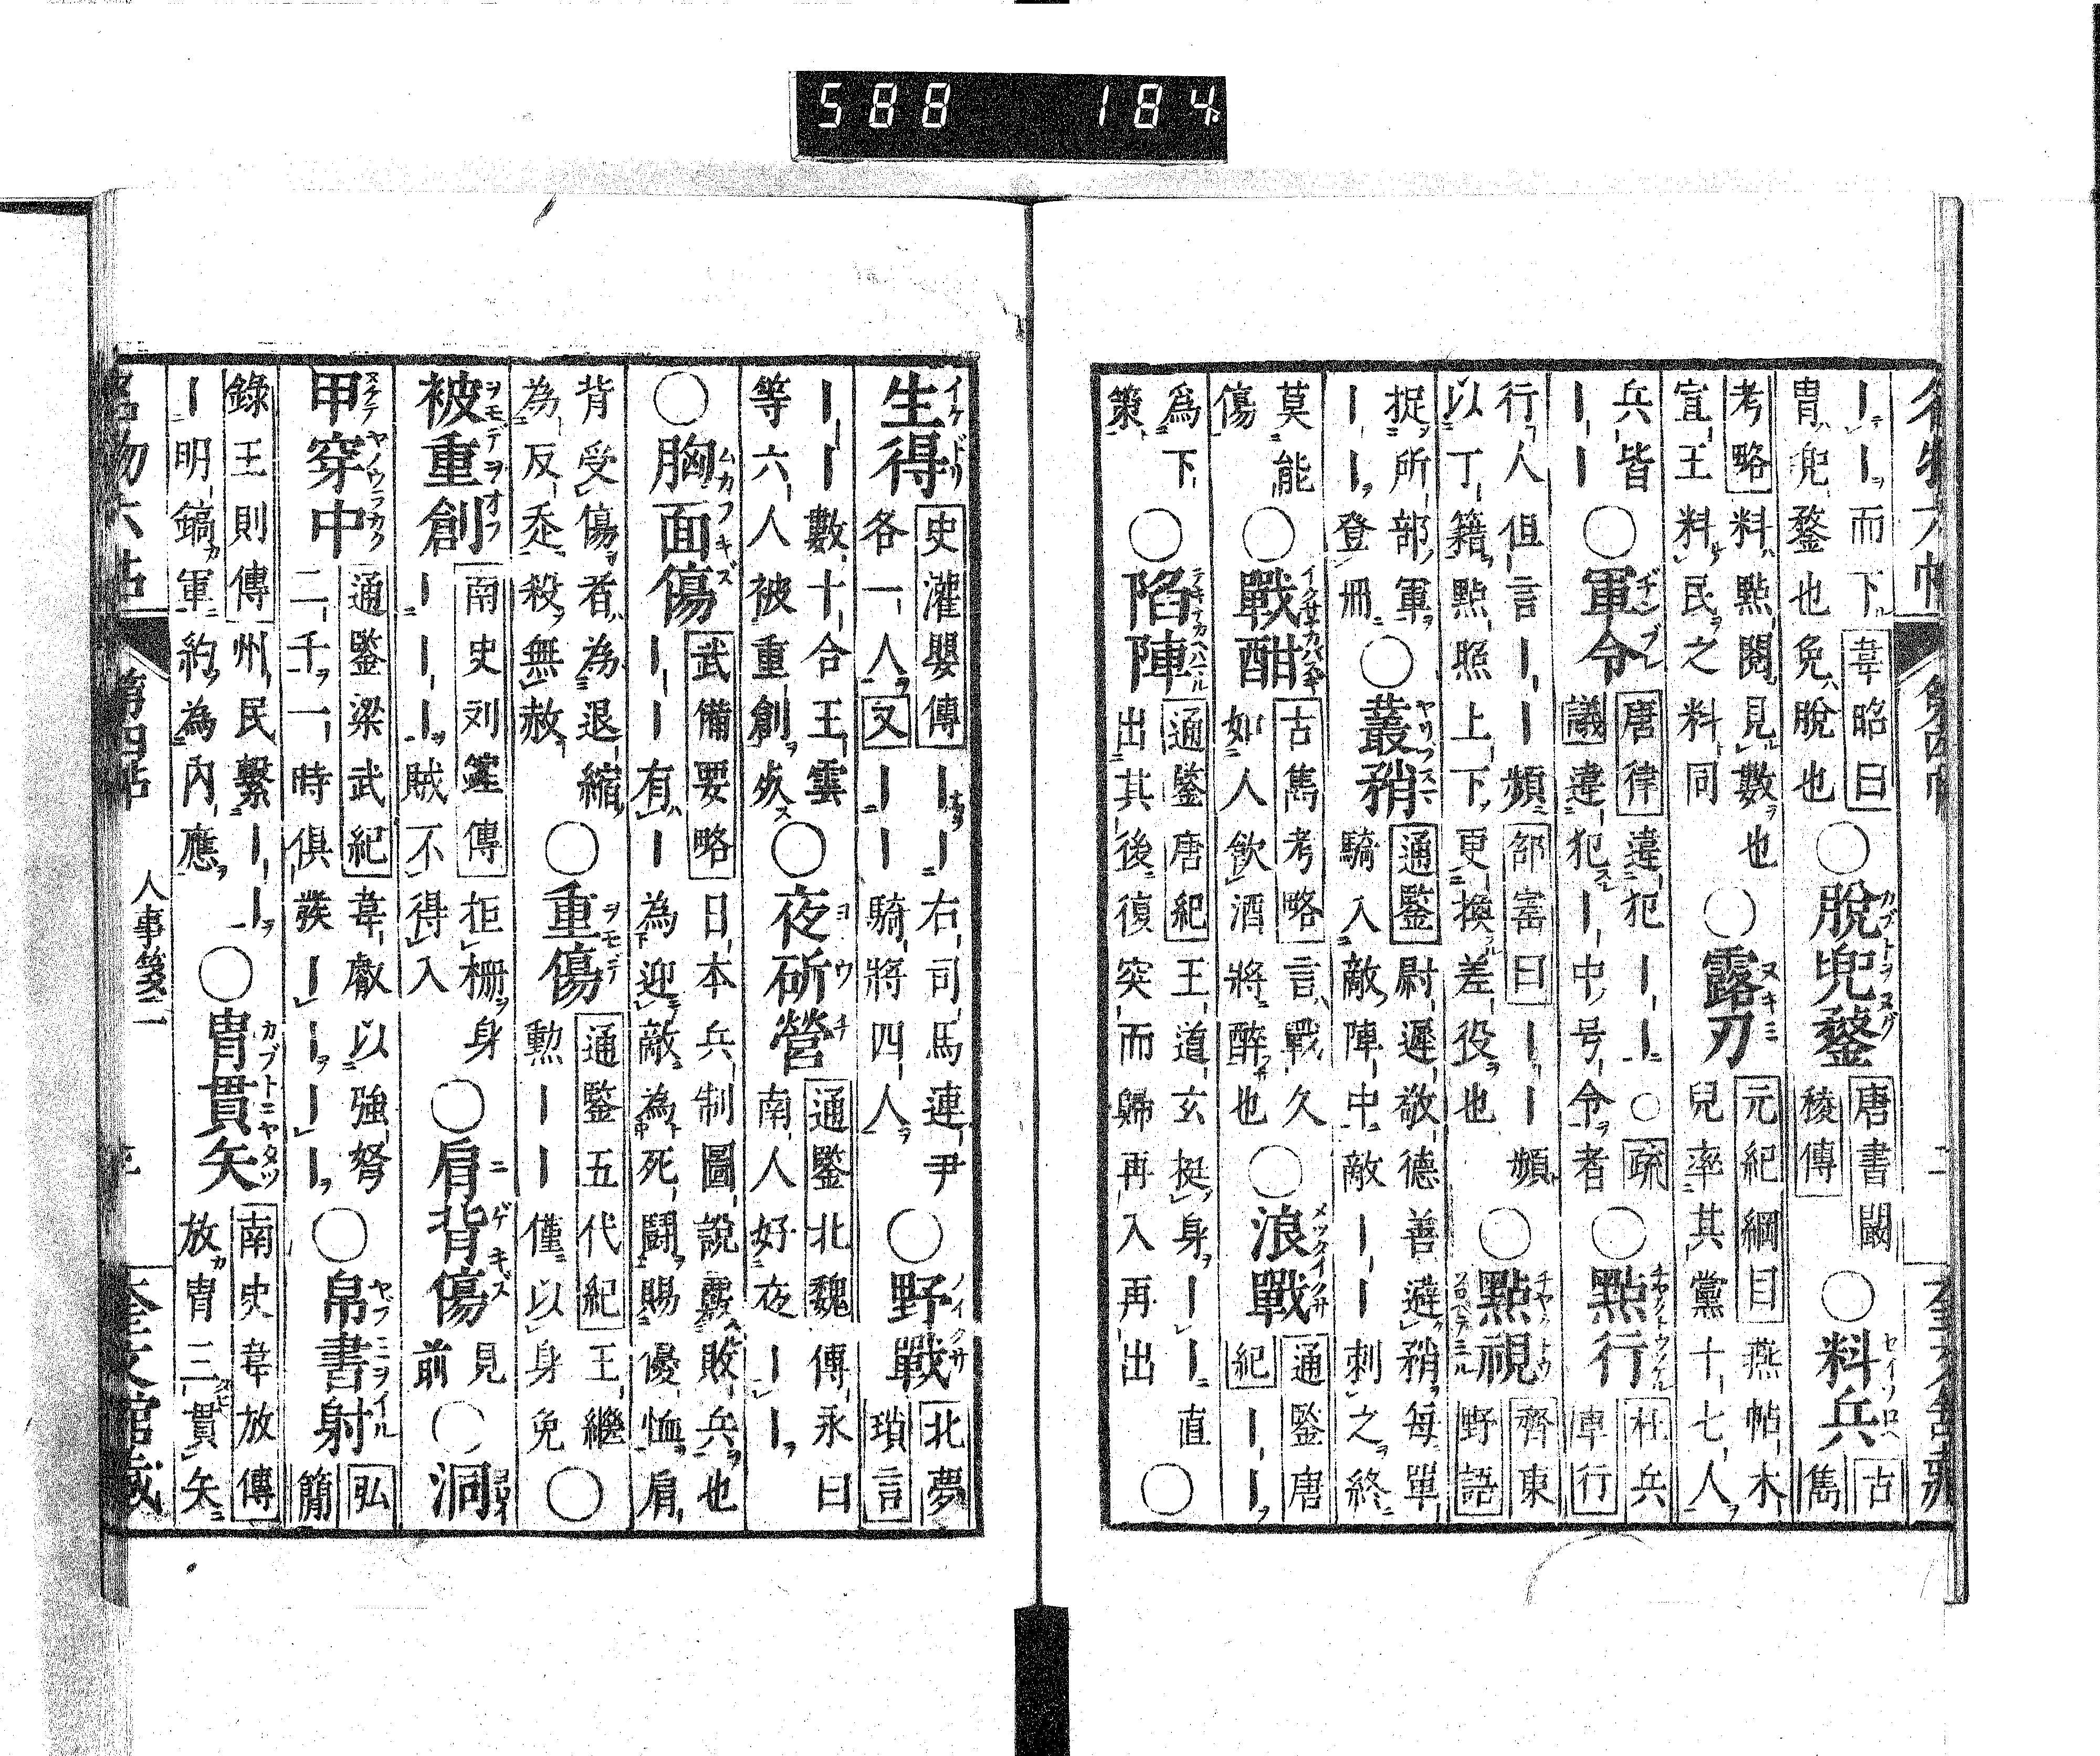 588 184
｜｜而下韋昭曰
冑兜鍪也免脫也
○脫兜鍪
唐書闞
稜傳
○料兵
古雋
考略料點閱見數也
宣王料料民之料同
○露刃
元紀綱目燕帖木
兒率其黨十七人
兵皆
｜｜
○軍令
唐律違犯｜｜○疏
議違犯｜中号令者
○點行
杜兵
車行
行人但言｜｜頻部富曰｜｜頻
以丁籍點照上下更換差役也
○點視
齊東
野語
捉所部軍
｜｜登冊
○叢矟
通鑒尉遲敬德善避矟每單
騎入敵陣中敵｜｜刺之終
莫能
傷
○戰酣
古雋考略言戰久
如人飲酒將醉也
○浪戰
通鑒唐
紀｜｜
為下
策
○陷陣
通鑒唐紀王道玄挺身｜｜直
出其後復突而歸再入再出
○
生得
史灌嬰傳｜｜右司馬連尹
各一人又｜｜騎將四人
○野戰
北夢
瑣言
｜｜數十合王雲
等六人被重創
○夜斫營
通鑒北魏傳永曰
南人好夜｜｜
○胸面傷
武備要略日本兵制圖說戰敗兵也
｜｜有｜為迎敵為死鬪賜優恤肩
背受傷者為退縮
為反走殺無赦
○重傷
通鑒五代紀王繼
勳｜｜僅以身免
○
被重創
南史列傳拒柵身
｜｜｜賊不得入
○肩背傷
見
前
○洞
甲穿中
通鑒梁武紀韋叡以強弩
二千一時俱發｜｜｜｜
○帛書射
弘
簡
錄王則傳州民繫｜｜
｜明鎬軍約為內應
○冑貫矢
南史韋放傳
放冑三貫矢
人事箋二